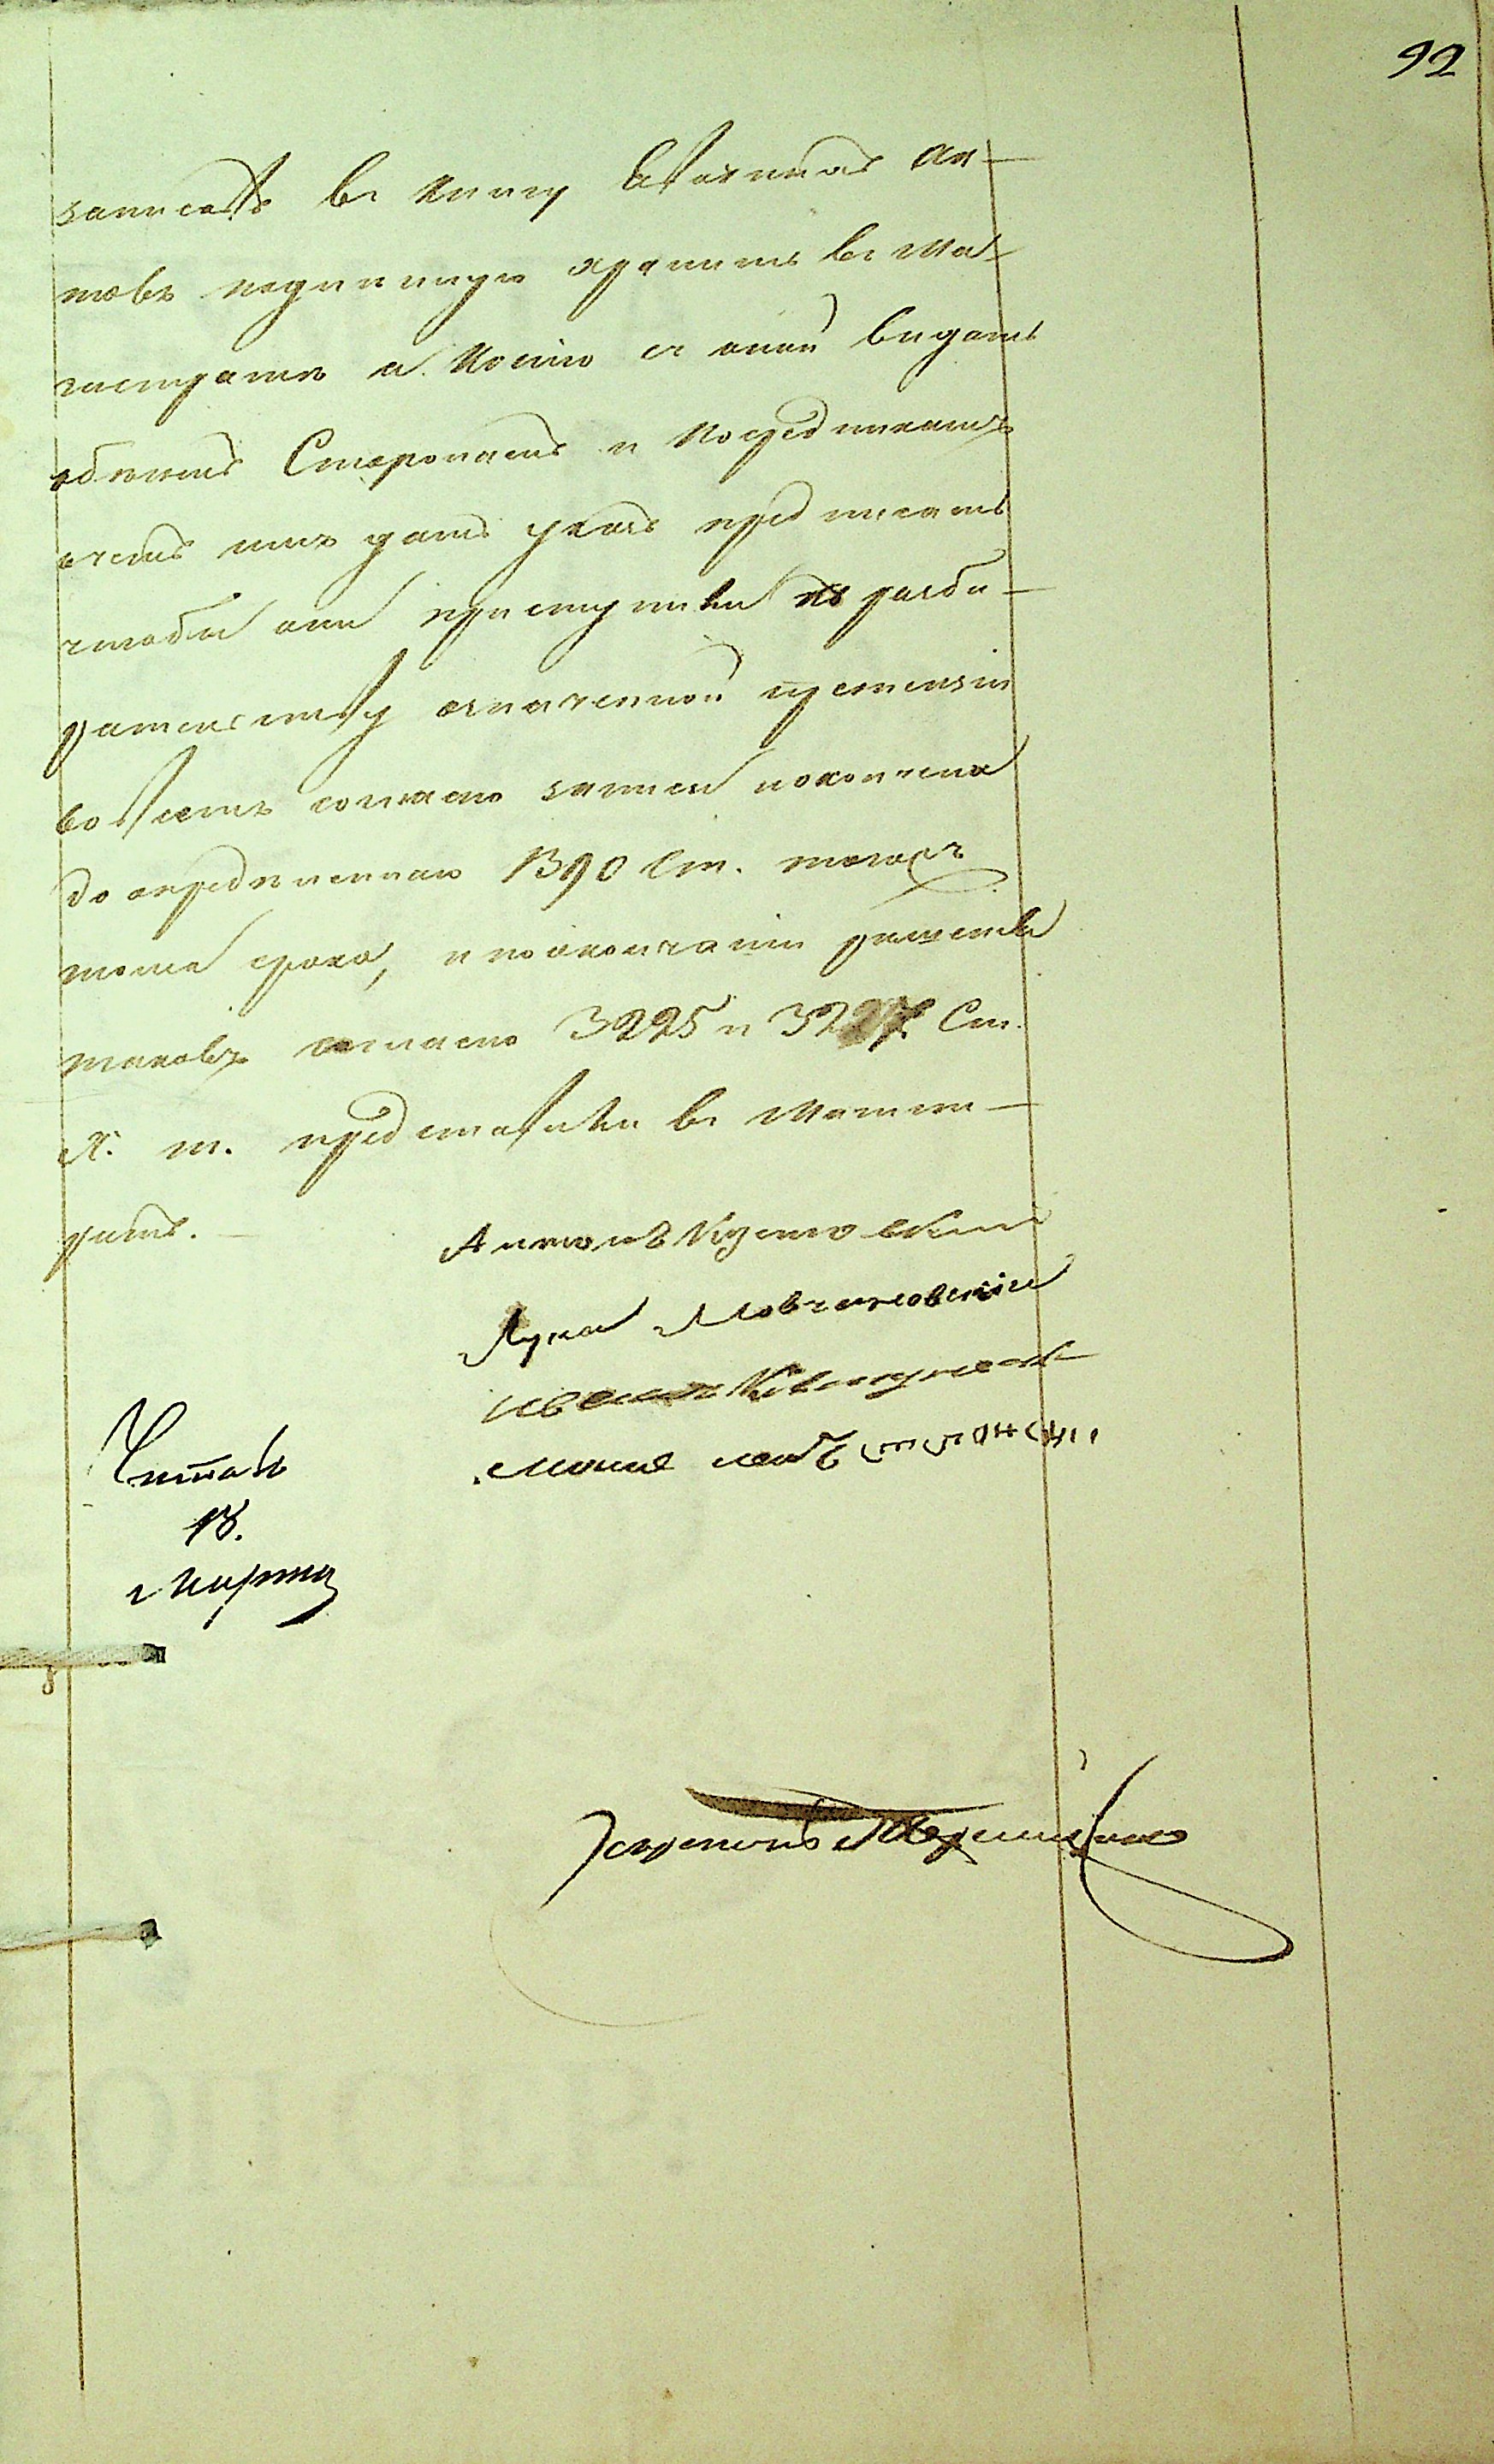 92
записать въ книгу явочныхъ ак-
товъ подлинную хранить въ ма-
гистратѣ а копію съ оной выдать
обѣимъ Сторонамъ и Посредникамъ
о чемъ имъ дать указъ предписать
чтобы они приступили къ разби-
рательству означенной претензіи
во всемъ согласно записи покончена
до опредѣленнаго 1390 Ст. того
тома срока, и по окончаніи рѣшенія
таковъ согласно 3225 и 3227 Ст.
X. т. представили въ Магист-
ратъ.
Антонъ
Лука
Иванъ
Читалъ
18.
Марта